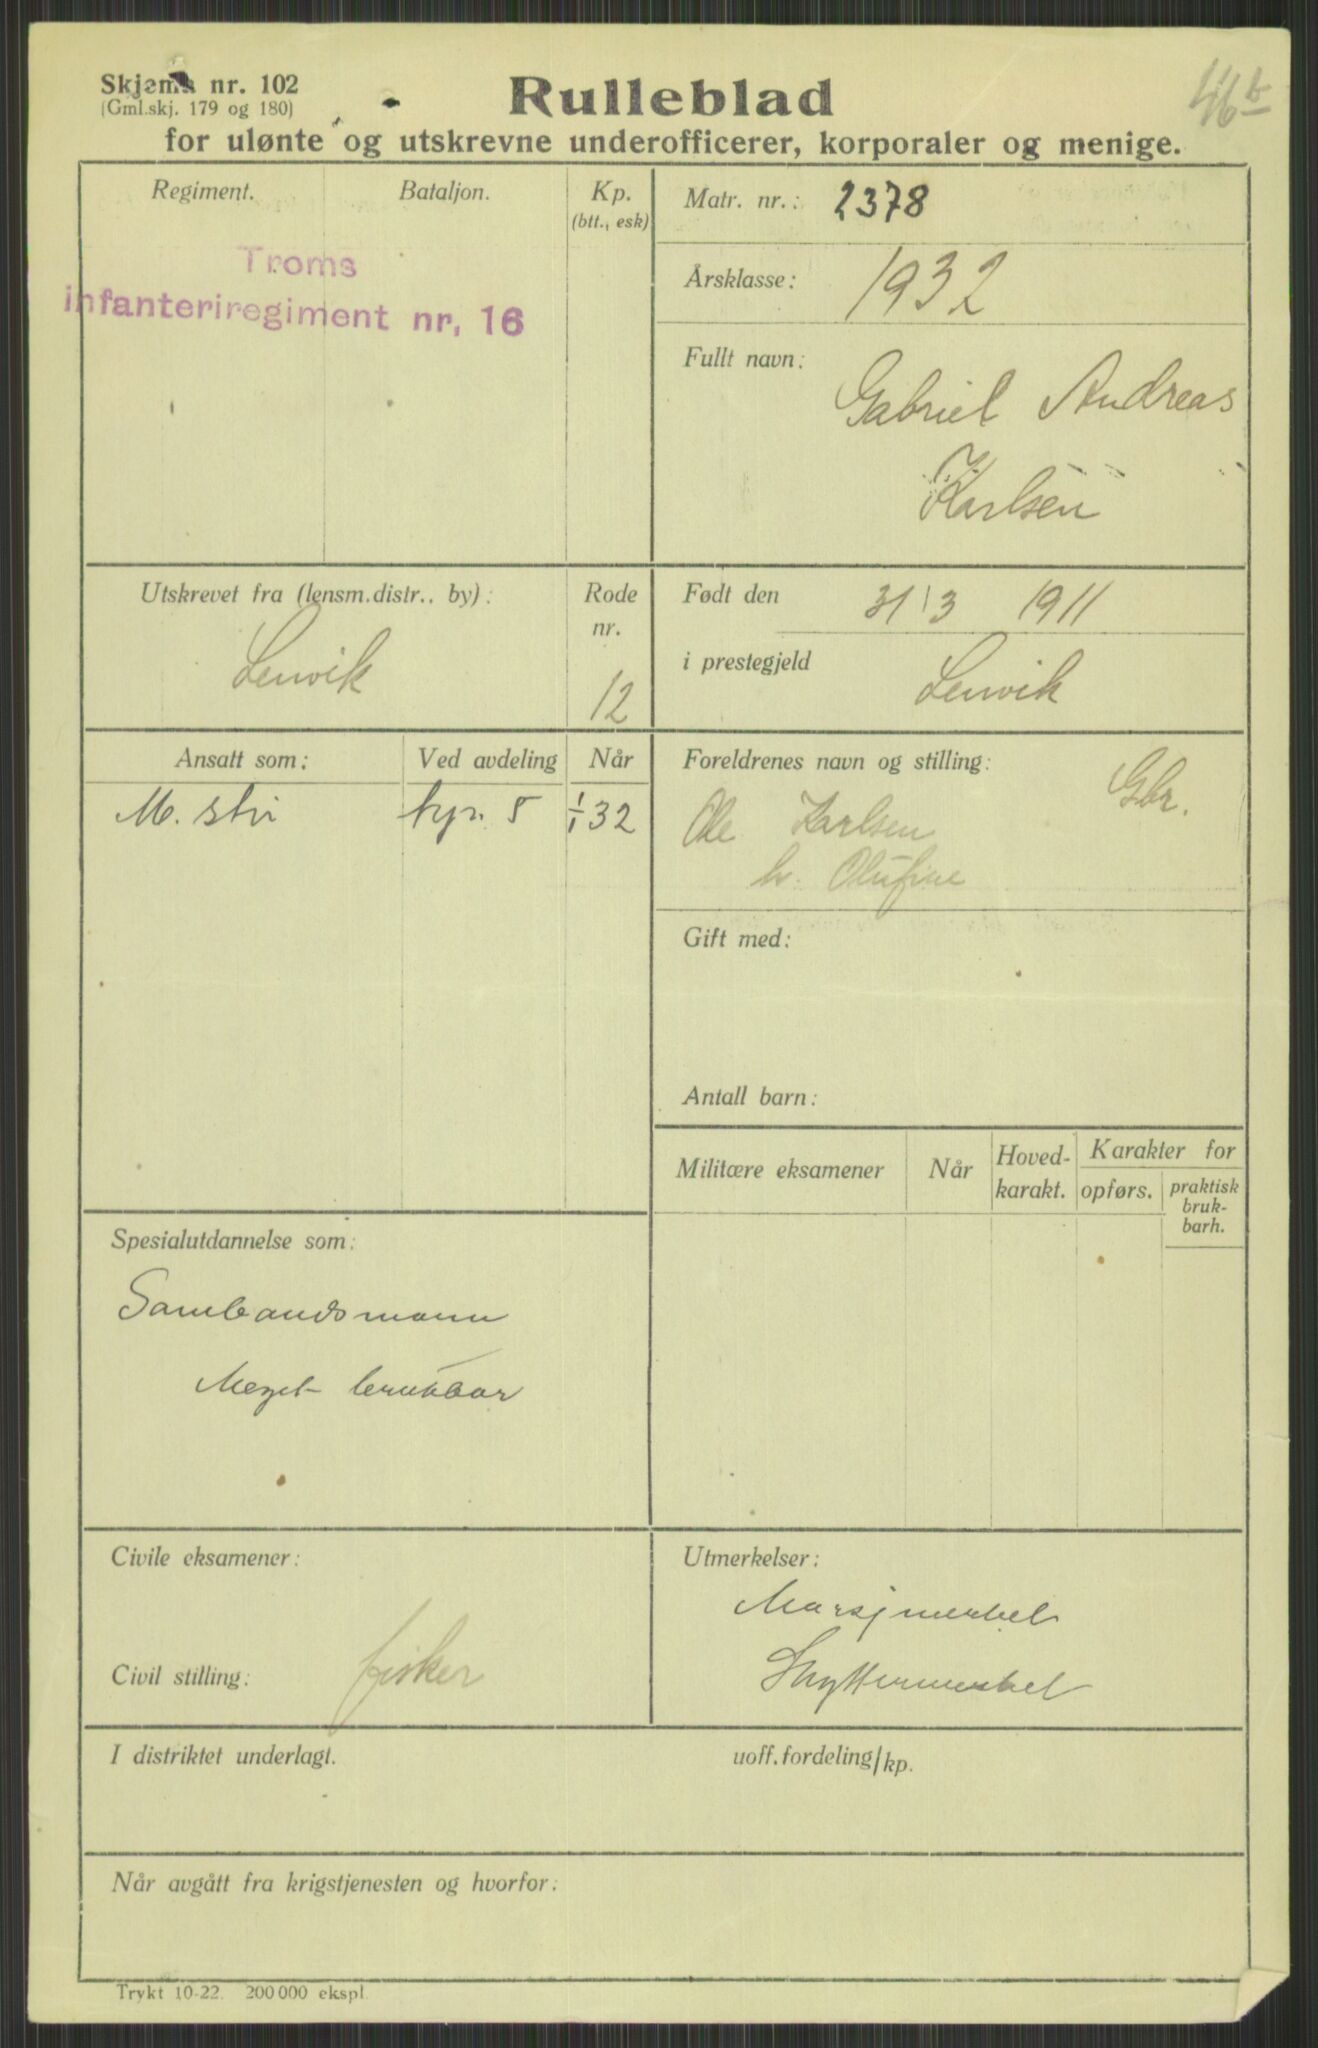 Skjema nr. 102
(Gml.skj. 179 og 180)
46 b
Rulleblad
for ulønte og utskrevne underofficerer, korporaler og menige.
Regiment.
Bataljon.
Kp.
(btt., esk)
Troms
infanteriregiment nr, 16
Matr. nr.: 2378
Årsklasse: 1932
Fullt navn: Gabriel Andreas
Karlsen
Utskrevet fra (lensm.distr., by):
Lenvik
Rode
nr.
12
Født den 31/3 1911
i prestegjeld Lenvik
Ansatt som:
Ved avdeling
Når
M.
5
1/1 32
Foreldrenes navn og stilling:
Gbr.
Ole Karlsen
h. Olufine
Gift med:
Antall barn:
Militære eksamener
Når
Hoved-
karakt.
Karakter for
opførs.
praktisk
bruk-
barh.
Spesialutdannelse som:
Sambandsmann
Meget brukbar
Civile eksamener:
Civil stilling: fisker
Utmerkelser:
Marsjmerket
Skyttermerket
I distriktet underlagt.
uoff.fordeling/kp.
Når avgått fra krigstjenesten og hvorfor:
Trykt 10-22. 200 000 ekspl.